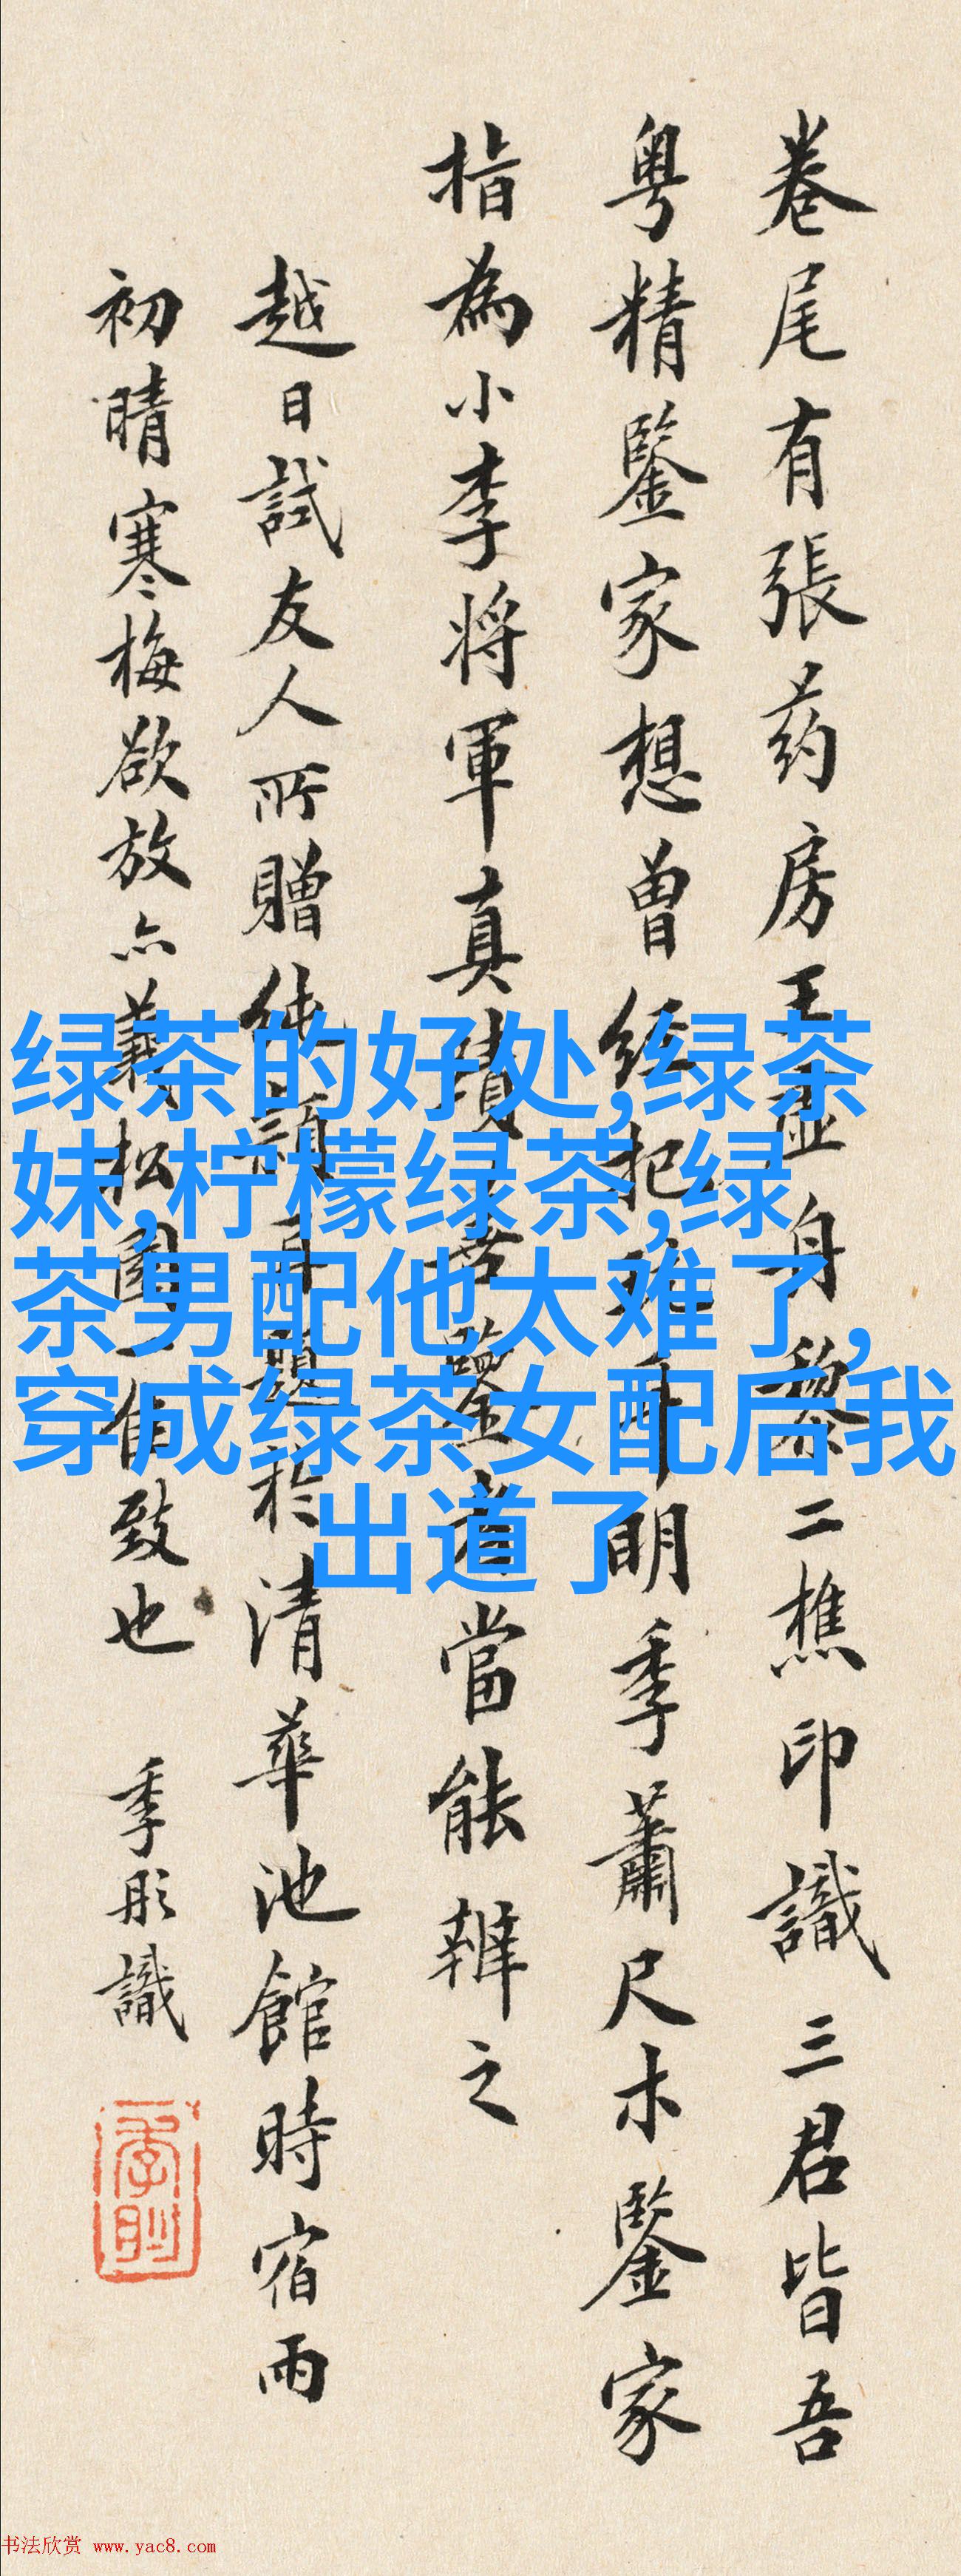 卷尾有張药房王虚舟黎二樵印識三君皆吾
粤精鑒家想曾经把玩耳明季蕭尺木鑒家
指為小李將軍真蹟善鑒者當能辨之
越日試友人所贈純穎再題於清華池館時宿雨
初晴寒梅欲放亦義松園一佳致也
季彤識
绿茶的好处,绿茶
妹,柠檬绿茶,绿
茶男配他太难了,
穿成绿茶女配后我
出道了
书法欣赏 www.yac8.com